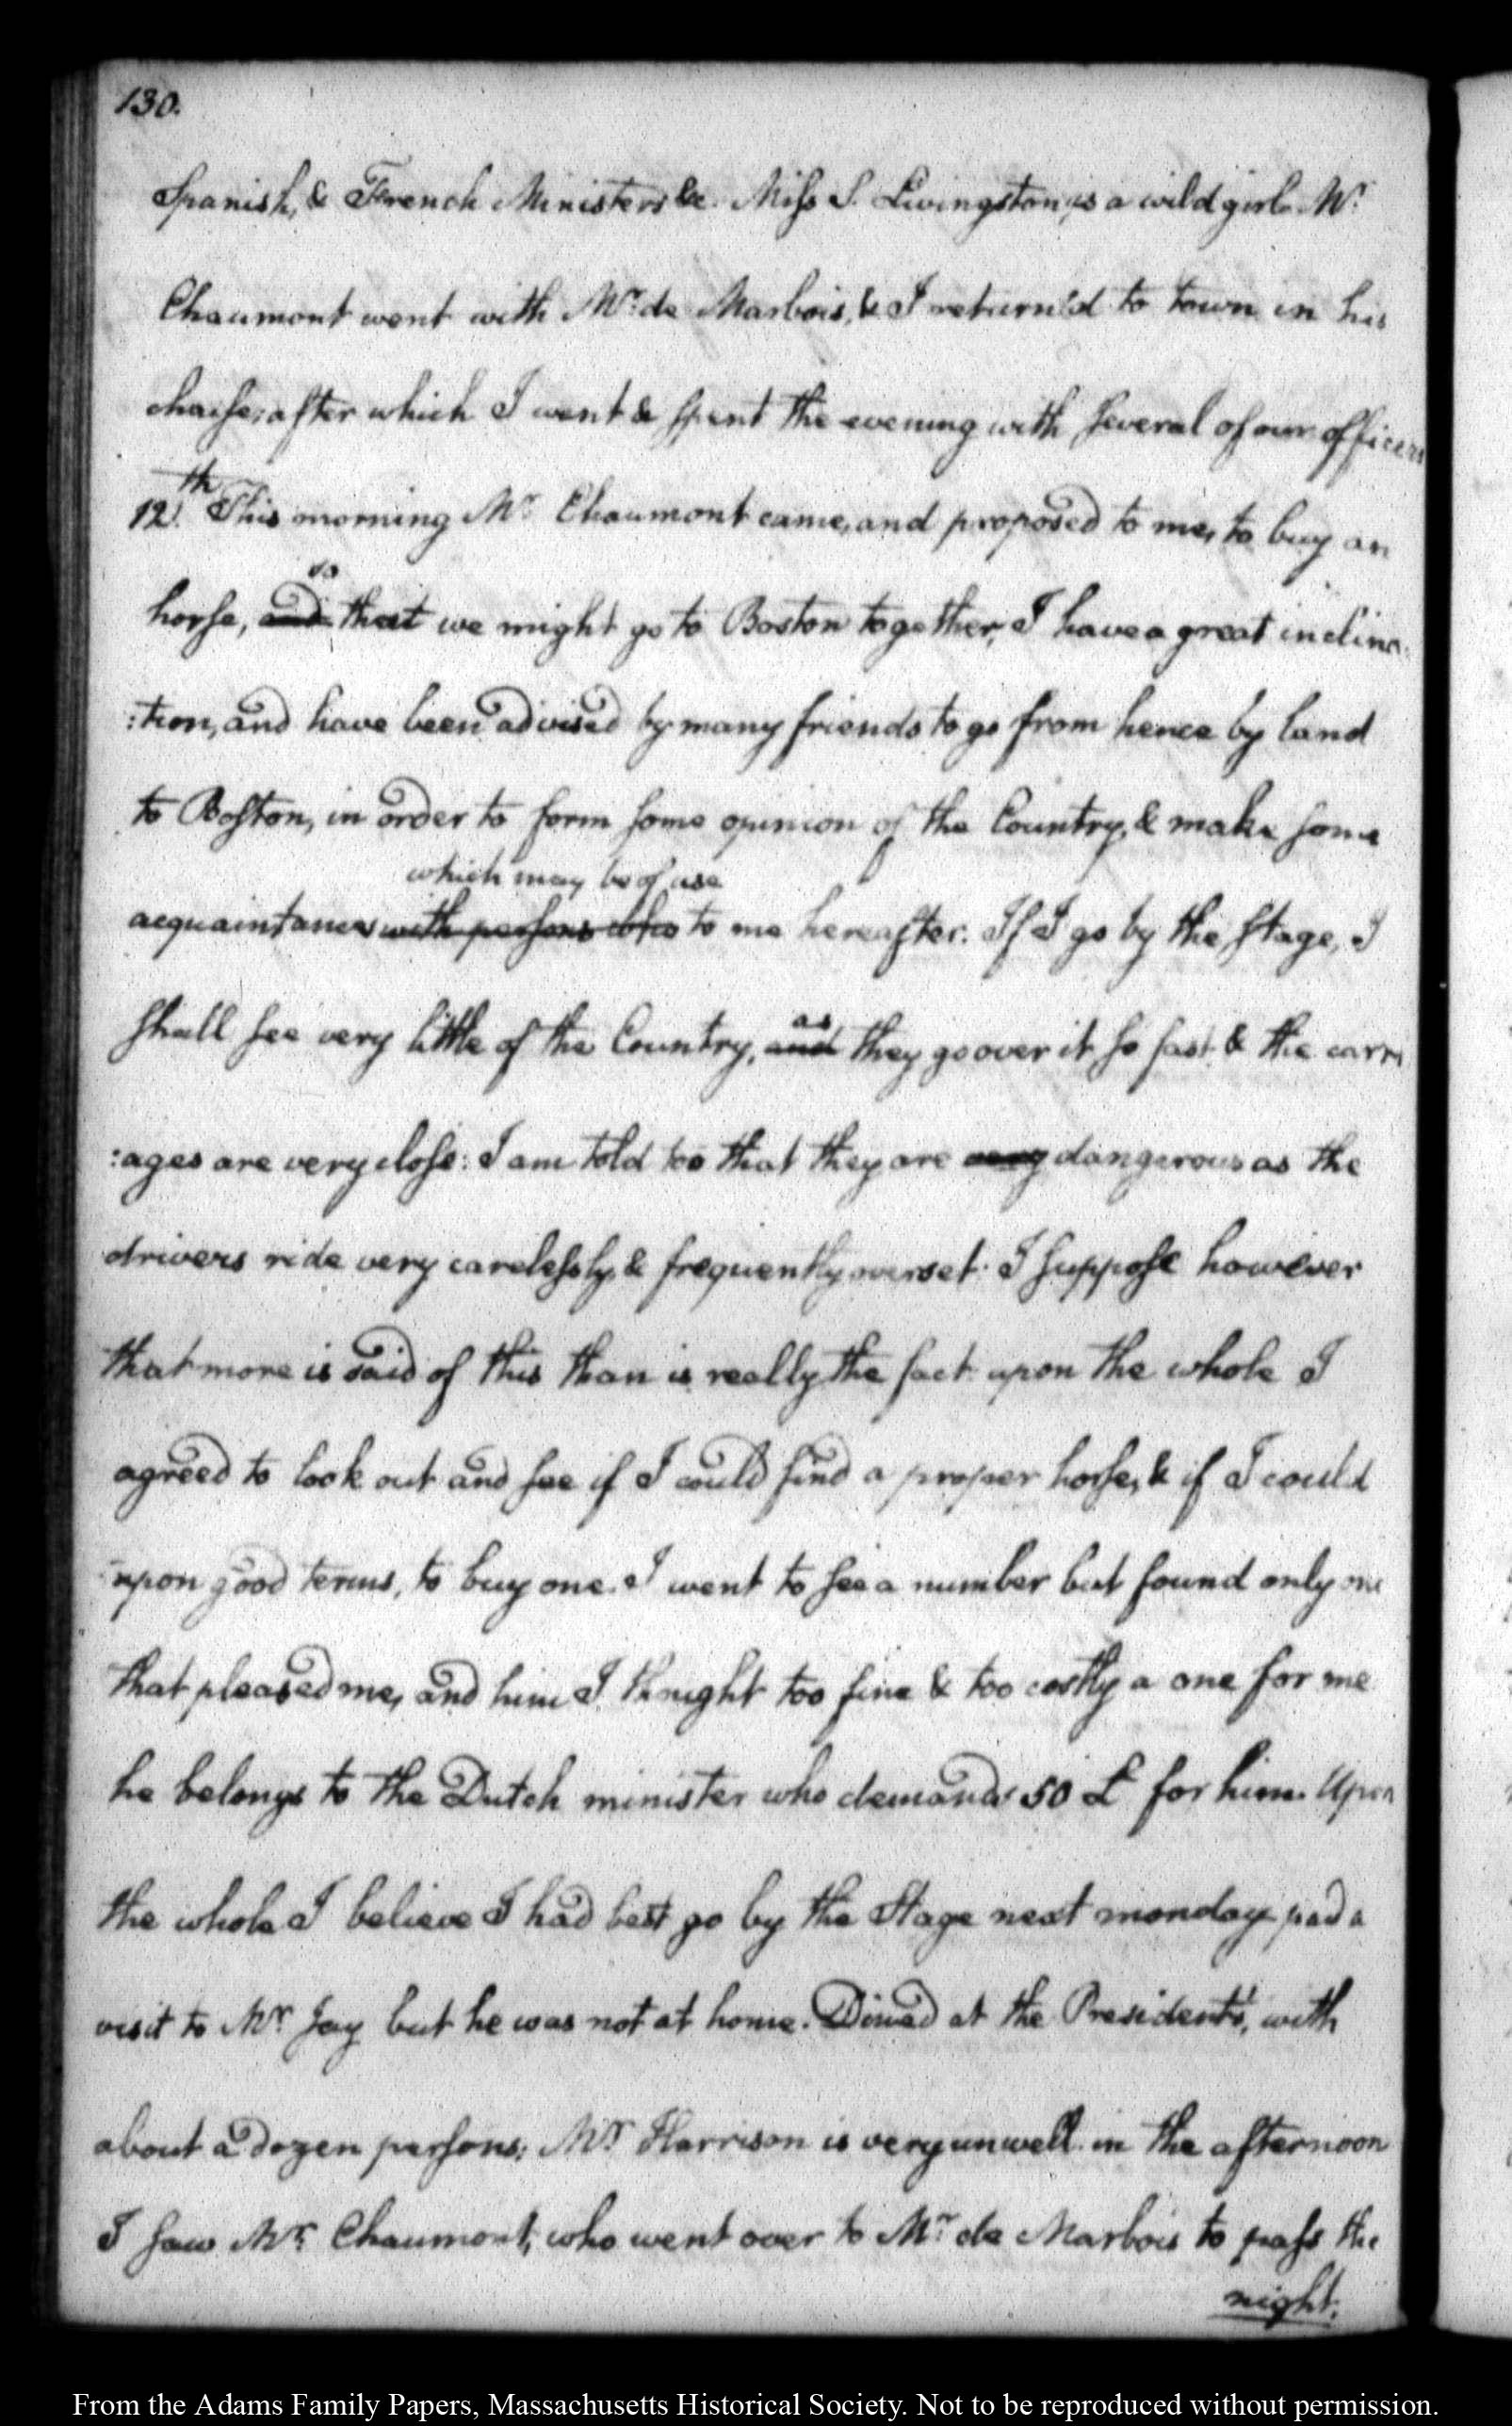 130.
Spanish, & French Ministers &c. Miss S. Livingston, is a wild girl. Mr.
Chaumont went with Mr. de Marbois, & I return'd to town in his
chaise; after which I went & spent the evening with several of our officers
12th. This morning Mr. Chaumont came, and proposed to me, to buy an
so
horse, and that we might go to Boston together, I have a great inclina:
:tion, and have been advised by many friends to go from hence by land
to Boston, in order to form some opinion of the Country, & make some
which may be of use
acquaintances with persons who to me hereafter. If I go by the stage, I
as
shall see very little of the Country, and they go over it so fast & the carri
:ages are very close: I am told too that they are very dangerous as the
drivers ride very carelessly, & frequently overset: I suppose however
that more is said of this than is really the fact upon the whole I
agreed to look out and see if I could find a proper horse, & if I could
upon good terms, to buy one. I went to see a number but found only one
that pleased me, and him I thought too fine & too costly a one for me
he belongs to the Dutch minister who demands 50 £ for him. Upon
the whole I believe I had best go by the Stage next monday paid a
visit to Mr. Jay but he was not at home. Dined at the President's, with
about a dozen persons; Mr. Harrison is very unwell. in the afternoon
I saw Mr. Chaumont, who went over to Mr. de Marbois to pass the
night.
From the Adams Family Papers, Massachusetts Historical Society. Not to be reproduced without permission.